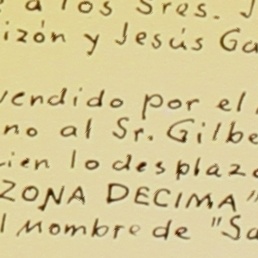 a los Sres. J
izón y Jesús Ga
vendido por el
no al Sr. Gilbe
ien lo desplaz
ZONA DECIMA"
l Nombre de "Sa